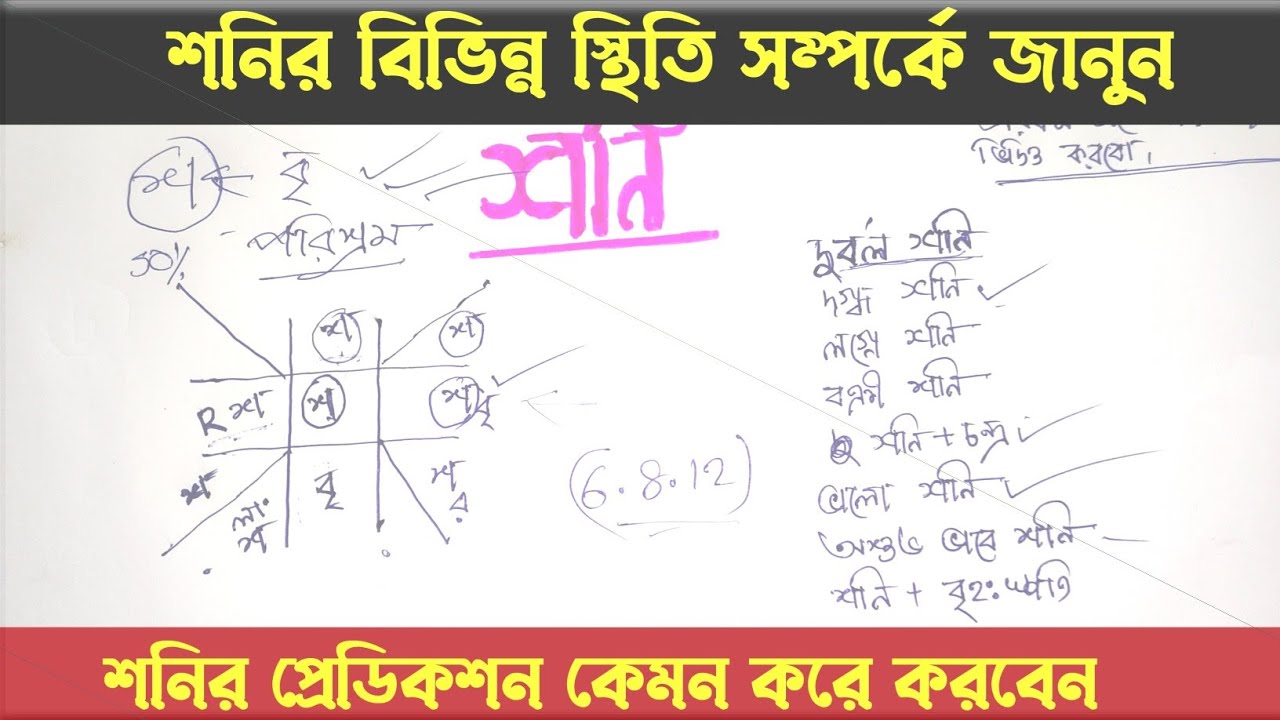 শনির বিভিন্ন স্থিতি সম্পর্কে জানুন
শনি
ভিডিও করবো।
শ বৃ
পরিশ্রম
50%
শ শ
R শ শ শ বৃ
শ লা: শ বৃ শ র
(6.8.12)
দুর্বল শনি
দগ্ধ শনি
লগ্নে শনি
বক্রী শনি
শনি + চন্দ্র
ভালো শনি
অশুভ ভাবে শনি
শনি + বৃহঃস্পতি
শনির প্রেডিকশন কেমন করে করবেন